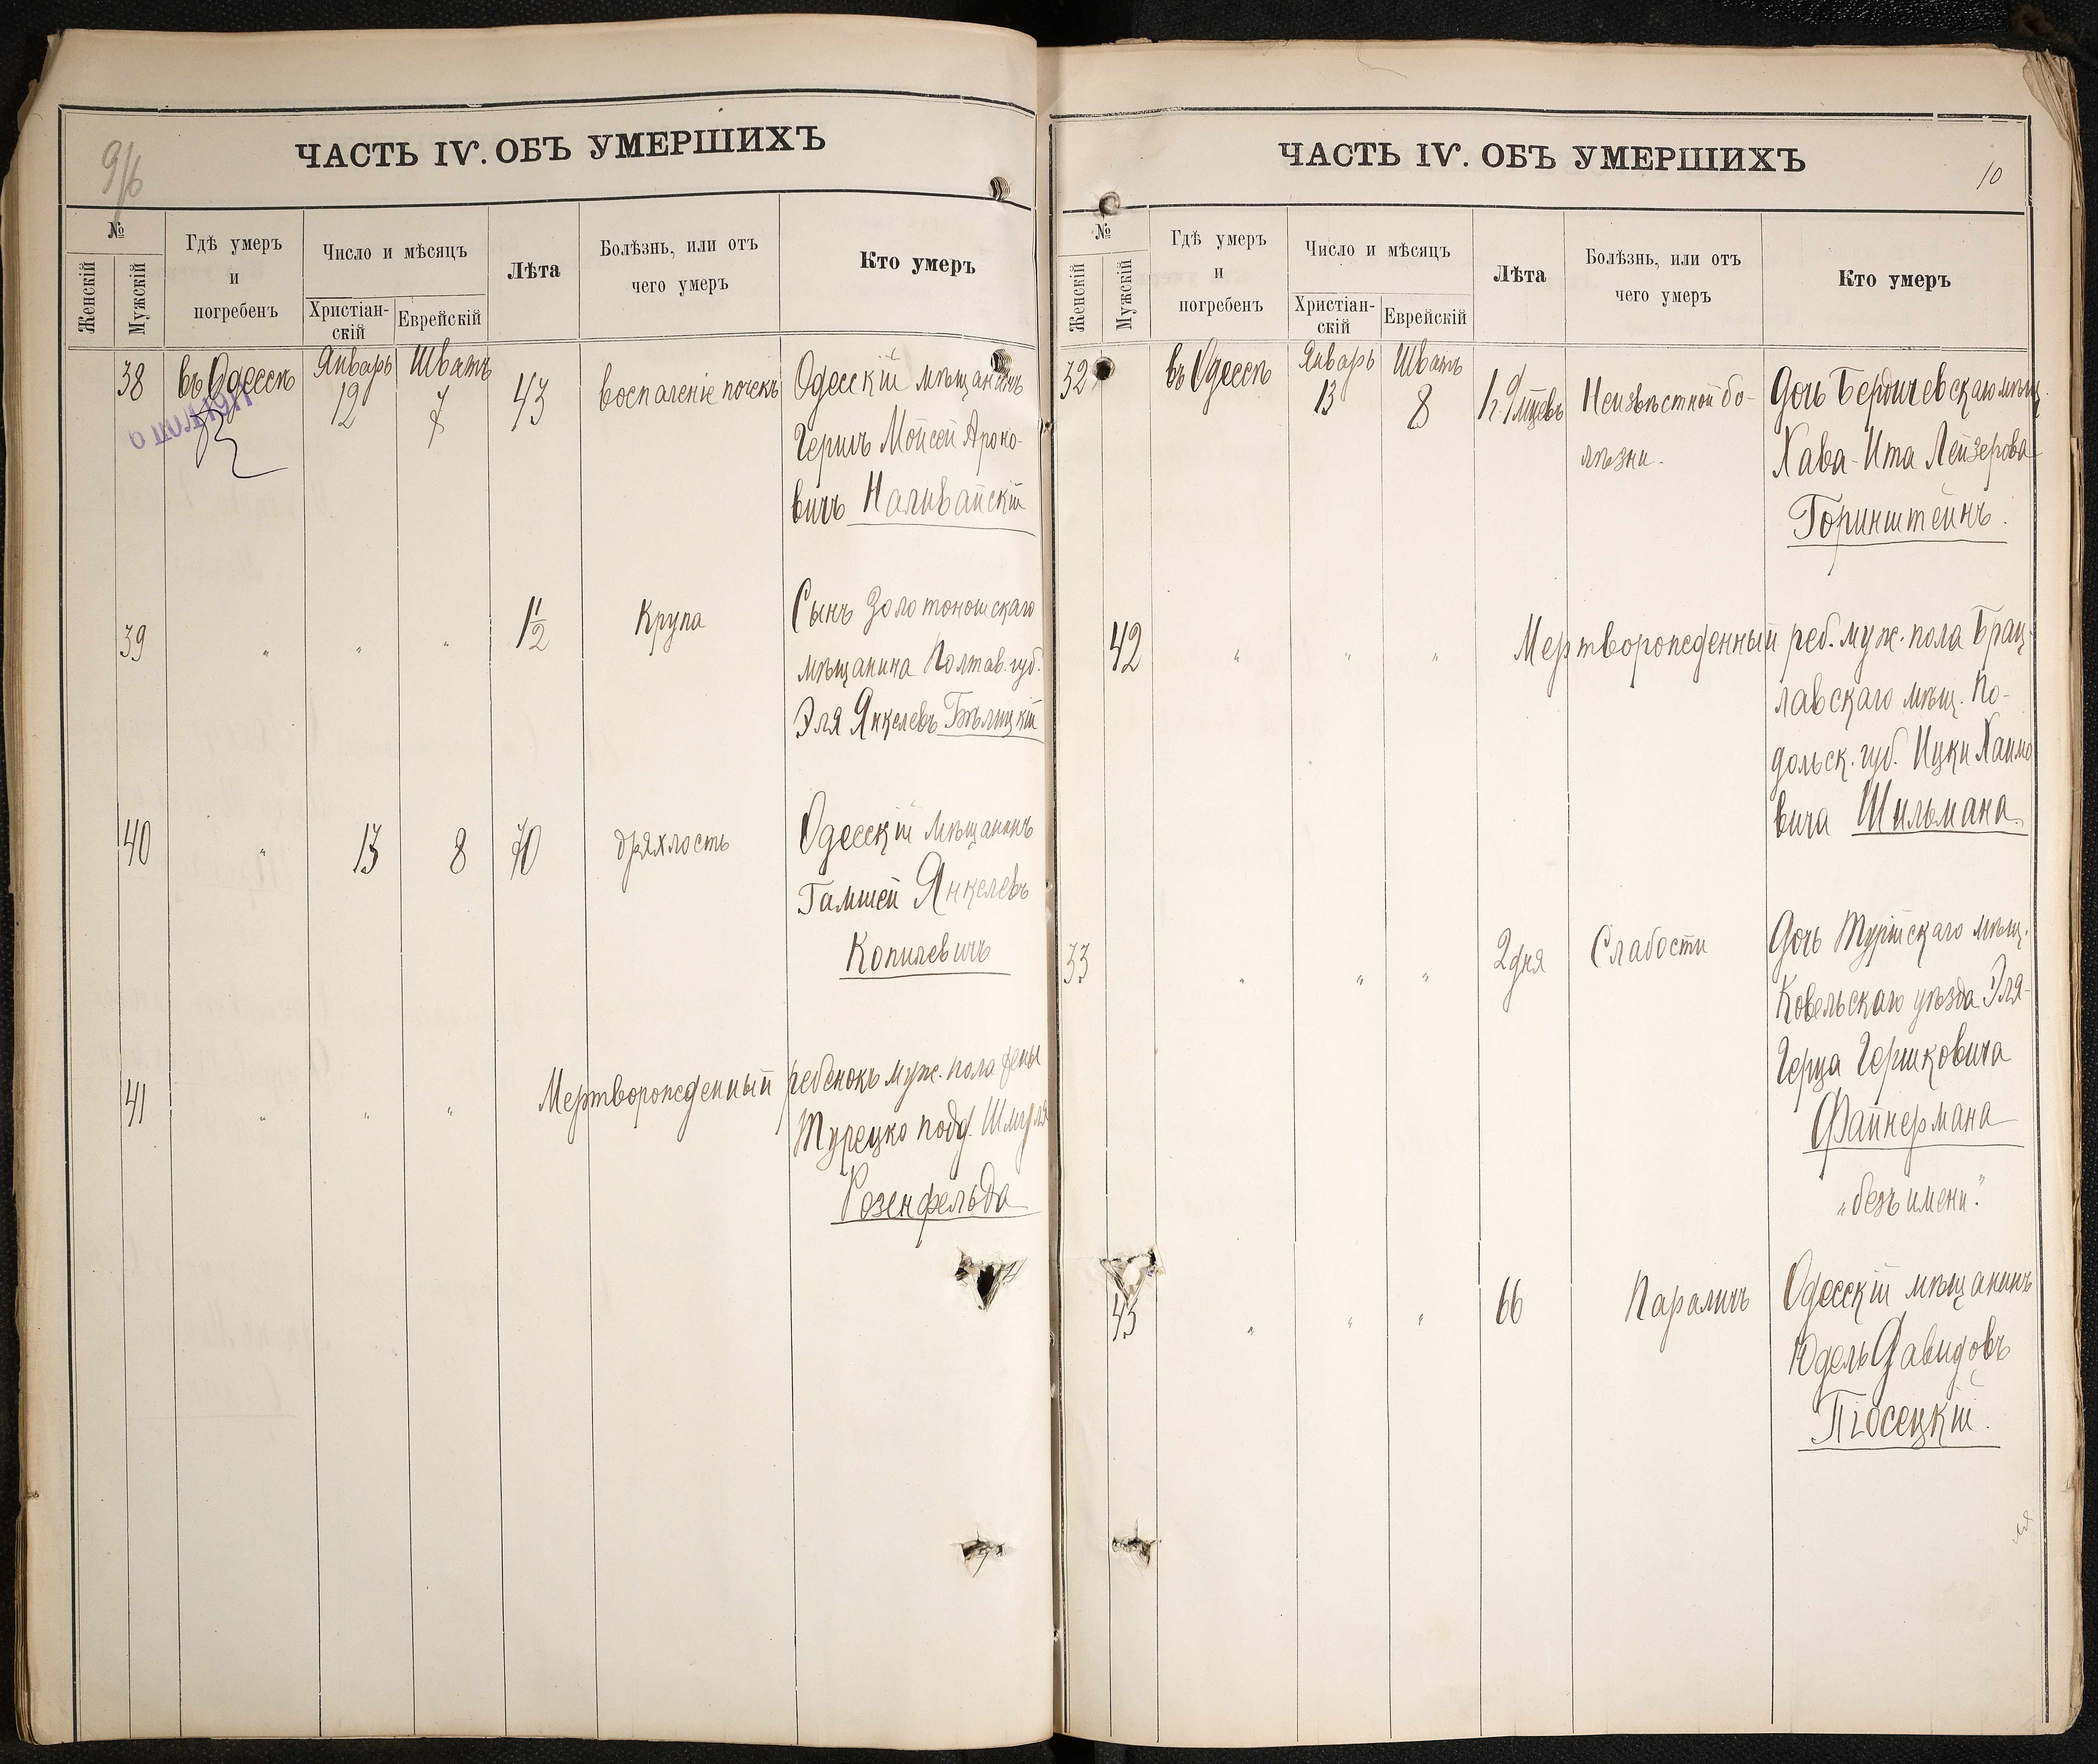 ЧАСТЬ IV. ОБЪ УМЕРШИХЪ
№
Женскій
Мужскій
Гдѣ умеръ
и
погребенъ
Число и мѣсяцъ
Христіан-
скій
Еврейскій
Лѣта
Болѣзнь, или отъ
чего умеръ
Кто умеръ
38 въ Одессѣ Январь 12 Шватъ 7 43 воспаленіе почекъ Одесскій мѣщанинъ
Гершъ Мойсей Ароно-
вичъ Наливайскій
39 " " " 1 1/2 Крупа Сынъ Золотоношскаго
мѣщанина Полтав. губ.
Эля Янкелевъ Бѣлицкій
40 " 13 8 70 дряхлость Одесскій мѣщанинъ
Гамшей Янкелевъ
Копилевичъ
41 " " " Мертворожденный ребенокъ муж. пола
Турецко подд. Шмуля
Розенфельда
ЧАСТЬ IV. ОБЪ УМЕРШИХЪ
10
№
Женскій
Мужскій
Гдѣ умеръ
и
погребенъ
Число и мѣсяцъ
Христіан-
скій
Еврейскій
Лѣта
Болѣзнь, или отъ
чего умеръ
Кто умеръ
32 въ Одессѣ Январь 13 Шватъ 8 1 г. 9 мцевъ Неизвѣстной бо-
лѣзни.
Дочь Бердичевскаго мѣщ.
Хава-Ита Лейзерова
Горинштейнъ.
42 " " " Мертворожденный реб. муж. пола Брац-
лавскаго мѣщ. По-
дольск. губ. Ицки Хаимо
вича Шильмана.
33 " " " 2 дня Слабости Дочь Турійскаго мѣщ.
Ковельскаго уѣзда Эля-
Герца Гершковича
Файнермана
"безъ имени."
43 " " " 66 Параличъ Одесскій мѣщанинъ
Юдель Давидовъ
Пісоецкій.